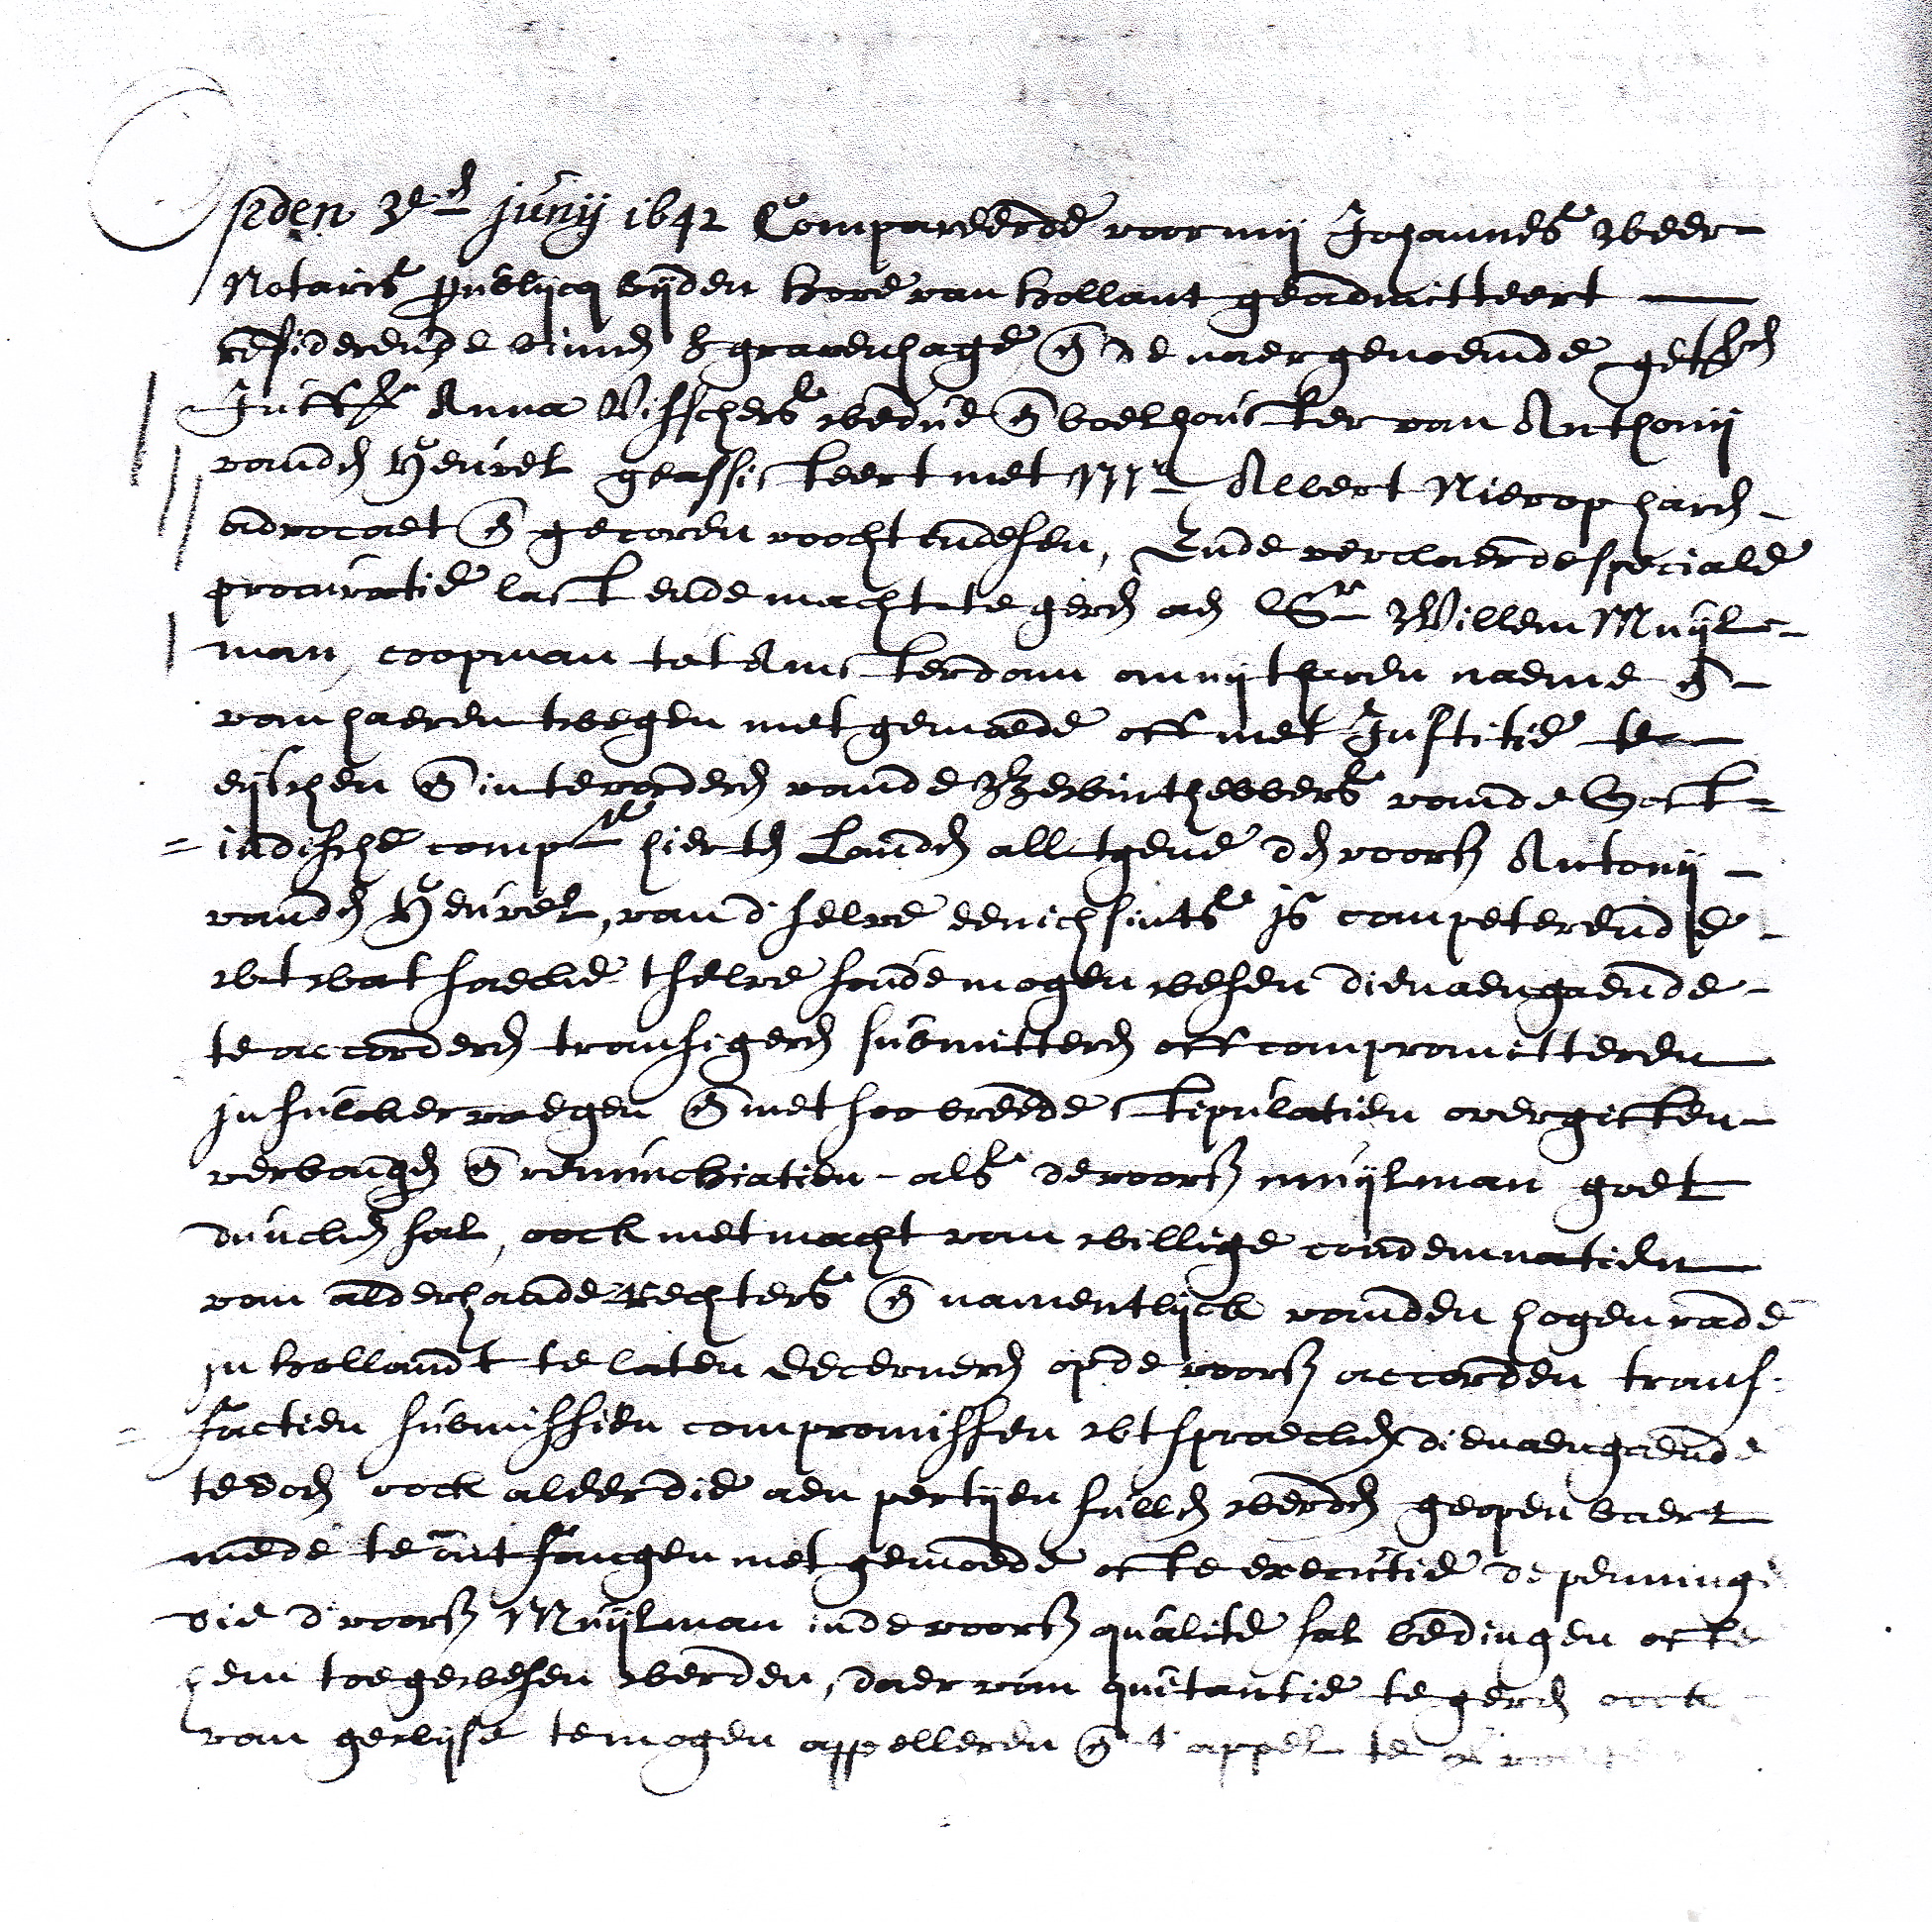 Opden 3en Junij 1642 Compareerde voor mij Johannes Weer
Notaris publijcq bijden hove van hollant geadmitteert
residerende binnen Sgravenhage en de naergenoemde getuygen
Juffe Anna Visschers wedue en boelhouster van Anthonij
vanden Heuvel geassisteert met Mr Albert Nierop haeren
advocaet en gecoren voocht in desen, Ende verclaerde speciale
procuratie last ende macht te geven aen Sr Willem Muijl
man, coopman tot Amsterdam om uijt haren naeme en
van haeren twegen met gemoede oft met Justitie te
eijschen en in te vorderen vande Bewinthebbers vande Oost
indische compie hier te Landen all tgene den voors Antonij
vanden Heuvel, van d'selve eenichsints is competerende
wt wat saecke tselve soude mogen wesen dienaengaende
te accorderen transigeren submitteren oft compromitteren
in sulcker voegen en met soo breede stipulatien overgiften
verbanden en renunchiatien als de voors muijlman goet
duncken sal, oock met macht van willige condemnatien
van alderhande Rechters en namentlijck vanden hogen rade
in hollandt te laten decerneren op de voors accorden trans
factien submissien compromissen wtspraecken dienaengaende
te doen oock alle die aen partijen sullen werden geopenbaert
mede te ontfangen met gemoede ofte executie de penninge
die d'voors Muijlman inde voors qualite sal bedingen ofte
hem toegewesen werden, daer van quitantie te geven oock
van gewijse te mogen appelleren en t' appel te